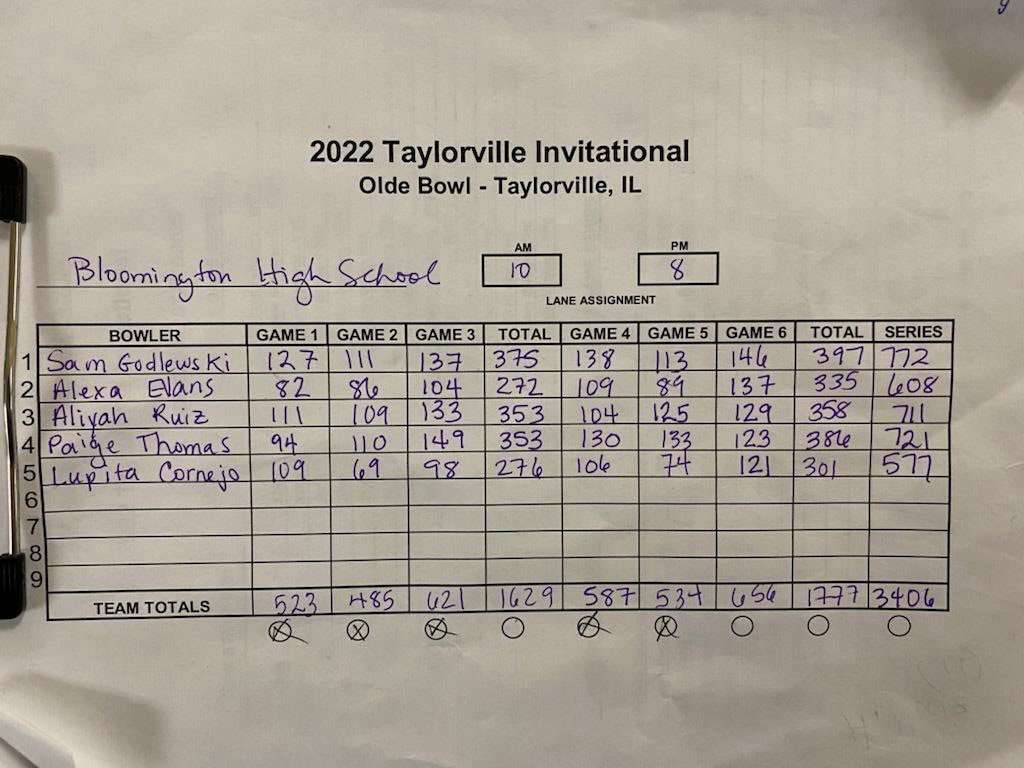 2022 Taylorville Invitational
Olde Bowl - Taylorville, IL
AM PM
Bloomington High School 10 8
LANE ASSIGNMENT
BOWLER GAME 1 GAME 2 GAME 3 TOTAL GAME 4 GAME 5 GAME 6 TOTAL SERIES
1 Sam Godlewski 127 111 137 375 138 113 146 397 772
2 Alexa Evans 82 86 104 272 109 89 137 335 608
3 Aliyah Ruiz 111 109 133 353 104 125 129 358 711
4 Paige Thomas 94 110 149 353 130 133 123 386 721
5 Lupita Cornejo 109 69 98 276 106 74 121 301 577
6
7
8
9
TEAM TOTALS 523 485 621 1629 587 534 656 1777 3406